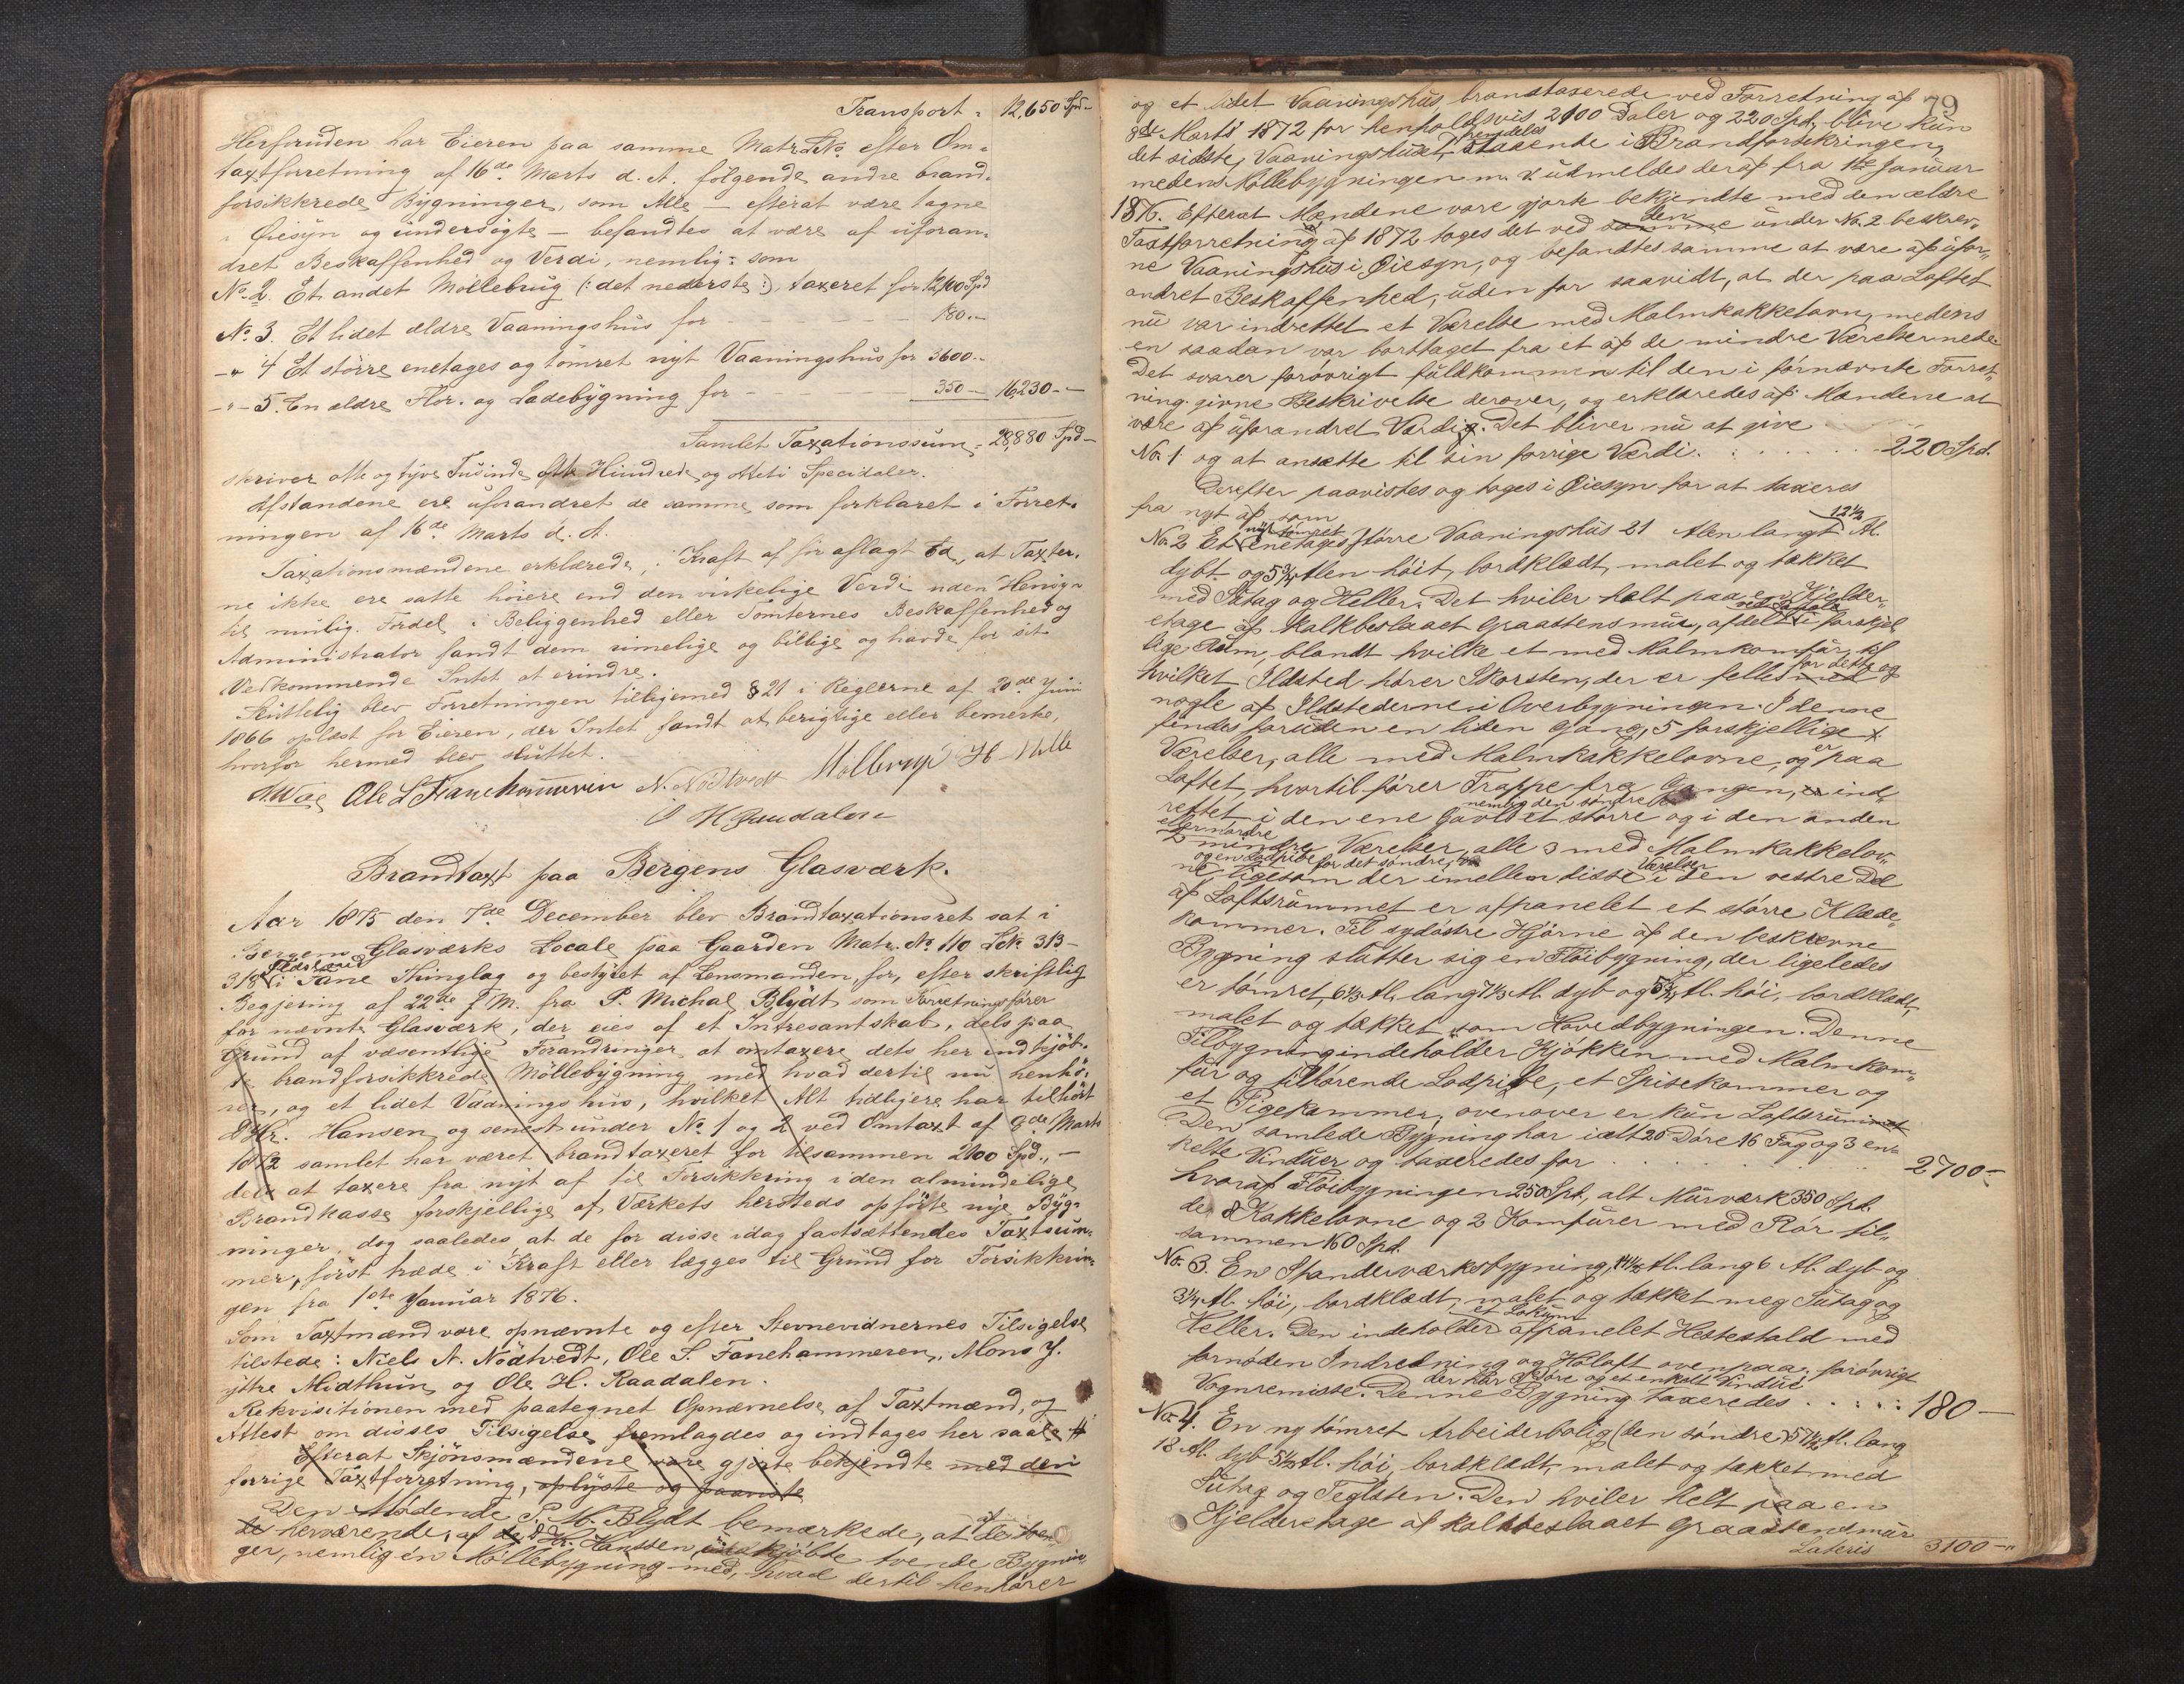 Transport = 12,650 Spd -
Herforuden har Eieren paa samme Matr. No. efter Om-
taxtforretning af 16de Marts d. A. følgende andre brand-
forsikkrede Bygninger, som Alle - efterat være tagne
i Øiesyn og undersøgte - befandtes at være af uforan-
dret Beskaffenhed og Verdi, nemlig: som
No. 2. Et andet Møllebrug (: det nederste :), taxeret for 12,100 Spd
No. 3. Et lidet ældre Vaaningshus for - - - 180 -
-"- 4 Et större enetages og tömret nyt Vaaningshus for 3600 -
-"- 5. En ældre Flor- og Ladebygning for - - - 350 - 16,230 -
Samlet Taxationssum = 28,880 Spd -
skriver otte og tyve Tusinde otte Hundrede og Otteti Specidaler.
Afstandene ere uforandret de samme, som forklaret i Forret-
ningen af 16de Marts d. A.
Taxationsmændene erklærede, i Kraft af før aflagt Ed, at Taxter-
ne ikke ere satte höiere end den virkelige Verdi uden Hensyn
til mulig Fordel i Beliggenhed eller Tomternes Beskaffenhed og
Administrator fandt dem rimelige og billige og havde for sit
Vedkommende Intet at erindre.
Sluttelig blev Forretningen tilligemed § 21 i Reglerne af 20de Juni
1866 oplæst for Eieren, der Intet fandt at berigtige eller bemerke,
hvorfor hermed blev sluttet. -
A. Wæ Ole S Fanehammeren N. Nødtvedt Møllerup H Melle
O H Raadalen
Brandtaxt paa Bergens Glasværk.
Aar 1875 den 7de December blev Brandtaxationsret sat i
Bergens Glasværks Locale paa Gaarden Matr. No. 110 Lök 313-
318 i Fane Thinglag og bestyret af Lensmanden, for, efter skriftlig
Begjering af 22de f. M. fra P. Michal Blydt som Forretningsfører
for nævnte Glasværk, der eies af et Intresantskab, dels paa
Grund af væsentlige Forandringer at omtaxere dets her indkjöb-
te brandforsikkrede Möllebygning med hvad dertil nu henhö-
rer, og et lidet Vaaningshus, hvilket Alt tidligere har tilhört
D Hr. Hansen og senest under No. 1 og 2 ved Omtaxt af 9de Marts
1872 samlet har været brandtaxeret for tilsammen 2100 Spd., -
dels at taxere fra nyt af til Forsikkring i den almindelige
Brandkasse forskjellige af Værkets hersteds opförte nye Byg-
ninger, dog saaledes at de for disse idag fastsættendes Taxtsum-
mer, först træde i Kraft eller lægges til Grund for Forsikkrin-
gen fra 1ste Januar 1876.
Som Taxtmænd vare opnævnte og efter Stevnevidnernes Tilsigelse
tilstede: Niels A. Nödtvedt, Ole S. Fanehammeren, Mons J.
ytre Midthun, og Ole H. Raadalen.
Rekvisitionen med paategnet Opnævnelse af Taxtmænd, og
Attest om disses Tilsigelse fremlagdes og indtages her saal: #
Efterat Skjönsmændene vare gjorte bekjendte med den
forrige Taxtforretning, oplyste og paaviste
Den Mødende P. M. Blydt bemærkede, at af de tven-
de herværende, af D Hr. Hanssen kjøbte tvende Bygnin-
ger, nemlig én Möllebygning med, hvad dertil henhører
79
og et lidet Vaaningshus, brandtaxerede ved Forretning af
9de Marts 1872 for henholdsvis 2100 Daler og 220 Spd, blive kun
det sidste, Vaaningshuset, fremdeles staaende i Brandforsikringen,
medens Møllebygningen m. v. udmeldes deraf fra 1ste Januar
1876. Efterat Mændene vare gjorte bekjendte med den ældre
Taxtforretning af 1872 toges det ved samme den under No. 2 beskrev-
ne Vaaningshus i Øiesyn, og befandtes samme at være af ufor-
andret Beskaffenhed, uden for saavidt, at der paa Loftet
nu var indrettet et Værelse med Malmkakkelovn, medens
en saadan var borttaget fra et af de mindre Værelser nede.
Det svarer forövrigt fuldkommen til den i förnævnte Forret-
ning givne Beskrivelse derover, og erklæredes af Mændene at
være af uforandret Værdi. Det bliver nu at give
No. 1 og at ansætte til sin forrige Værdi. : . . . . . 220 Spd.
Derefter paavistes og toges i Øiesyn for at taxeres
fra nyt af som
No. 2 Et nyt tømret enetages större Vaaningshus 21 Alen langt 12 1/2 Al.
dybt og 5 3/4 Alen höit, bordklædt, malet og tækket
med Sutag og Heller. Det hviler helt paa en Kjelder-
etage af kalkbeslaaet Graastensmur, afdelt i forskjel-
lige Rum, blandt hvilke et med Malmkomfur, til
hvilket Ildsted hører Skorsten, der er felles med for dette og
nogle af Ildstederne i Overbygningen. I denne
findes foruden en liden Gang, 5 forskjellige
Værelser, alle med Malmkakkelovne, og er paa
Loftet, hvortil fører Trappe fra Gangen, er ind-
rettet i den ene Gavl nemlig den søndre et större og i den anden
eller nordre 2 mindre Værelser, alle 3 med Malmkakkelov-
ne og en Ladpibe for det søndre, ligesom der imellem disse Værelser i den vestre Del
af Loftsrummet er afpanelet et större Klæde-
kammer. Til sydöstre Hjörne af den beskrevne
Bygning slutter sig en Flöibygning, der ligeledes
er tömret, 6 1/3 Al. lang 7 1/3 Al. dyb og 5 3/4 Al. höi, bordklædt,
malet og tækket som Hovedbygningen. Denne
Tilbygning indeholder Kjökken med Malmkom-
fur og tilhørende Ladpibe, et Spisekammer og
et Pigekammer, ovenover er kun Loftsrummet
Den samlede Bygning har ialt 20 Døre 16 Fag og 3 en-
kelte Vinduer og taxeredes for . . . . . 2700 -
hvoraf Flöibygningen 250 Spd, alt Murværk 350 Spd.
de 8 Kakkelovne og 2 Komfurer med Rör til-
sammen 160 Spd.
No. 3. En Standerværksbygning, 14 1/2 Al. lang 6 Al. dyb og
3 1/4 Al. höi, bordklædt, malet og tækket meg Sutag og
Heller. Den indeholder et Lokum afpanelet Hestestald med
fornöden Indredning og Høloft ovenpaa, forövrigt
Vognremisse. der har Døre og et enkelt Vindue Denne Bygning taxeredes . . . . . 180 -
No. 4. En ny tömret Arbeiderbolig (den søndre) 57 1/2 Al. lang
18 Al. dyb 5 1/2 Al. höi, bordklædt, malet og tækket med
Sutag og Teglsten. Den hviler helt paa en
Kjelderetage af kalkbeslaaet Graastensmur
Lateris 3100 -